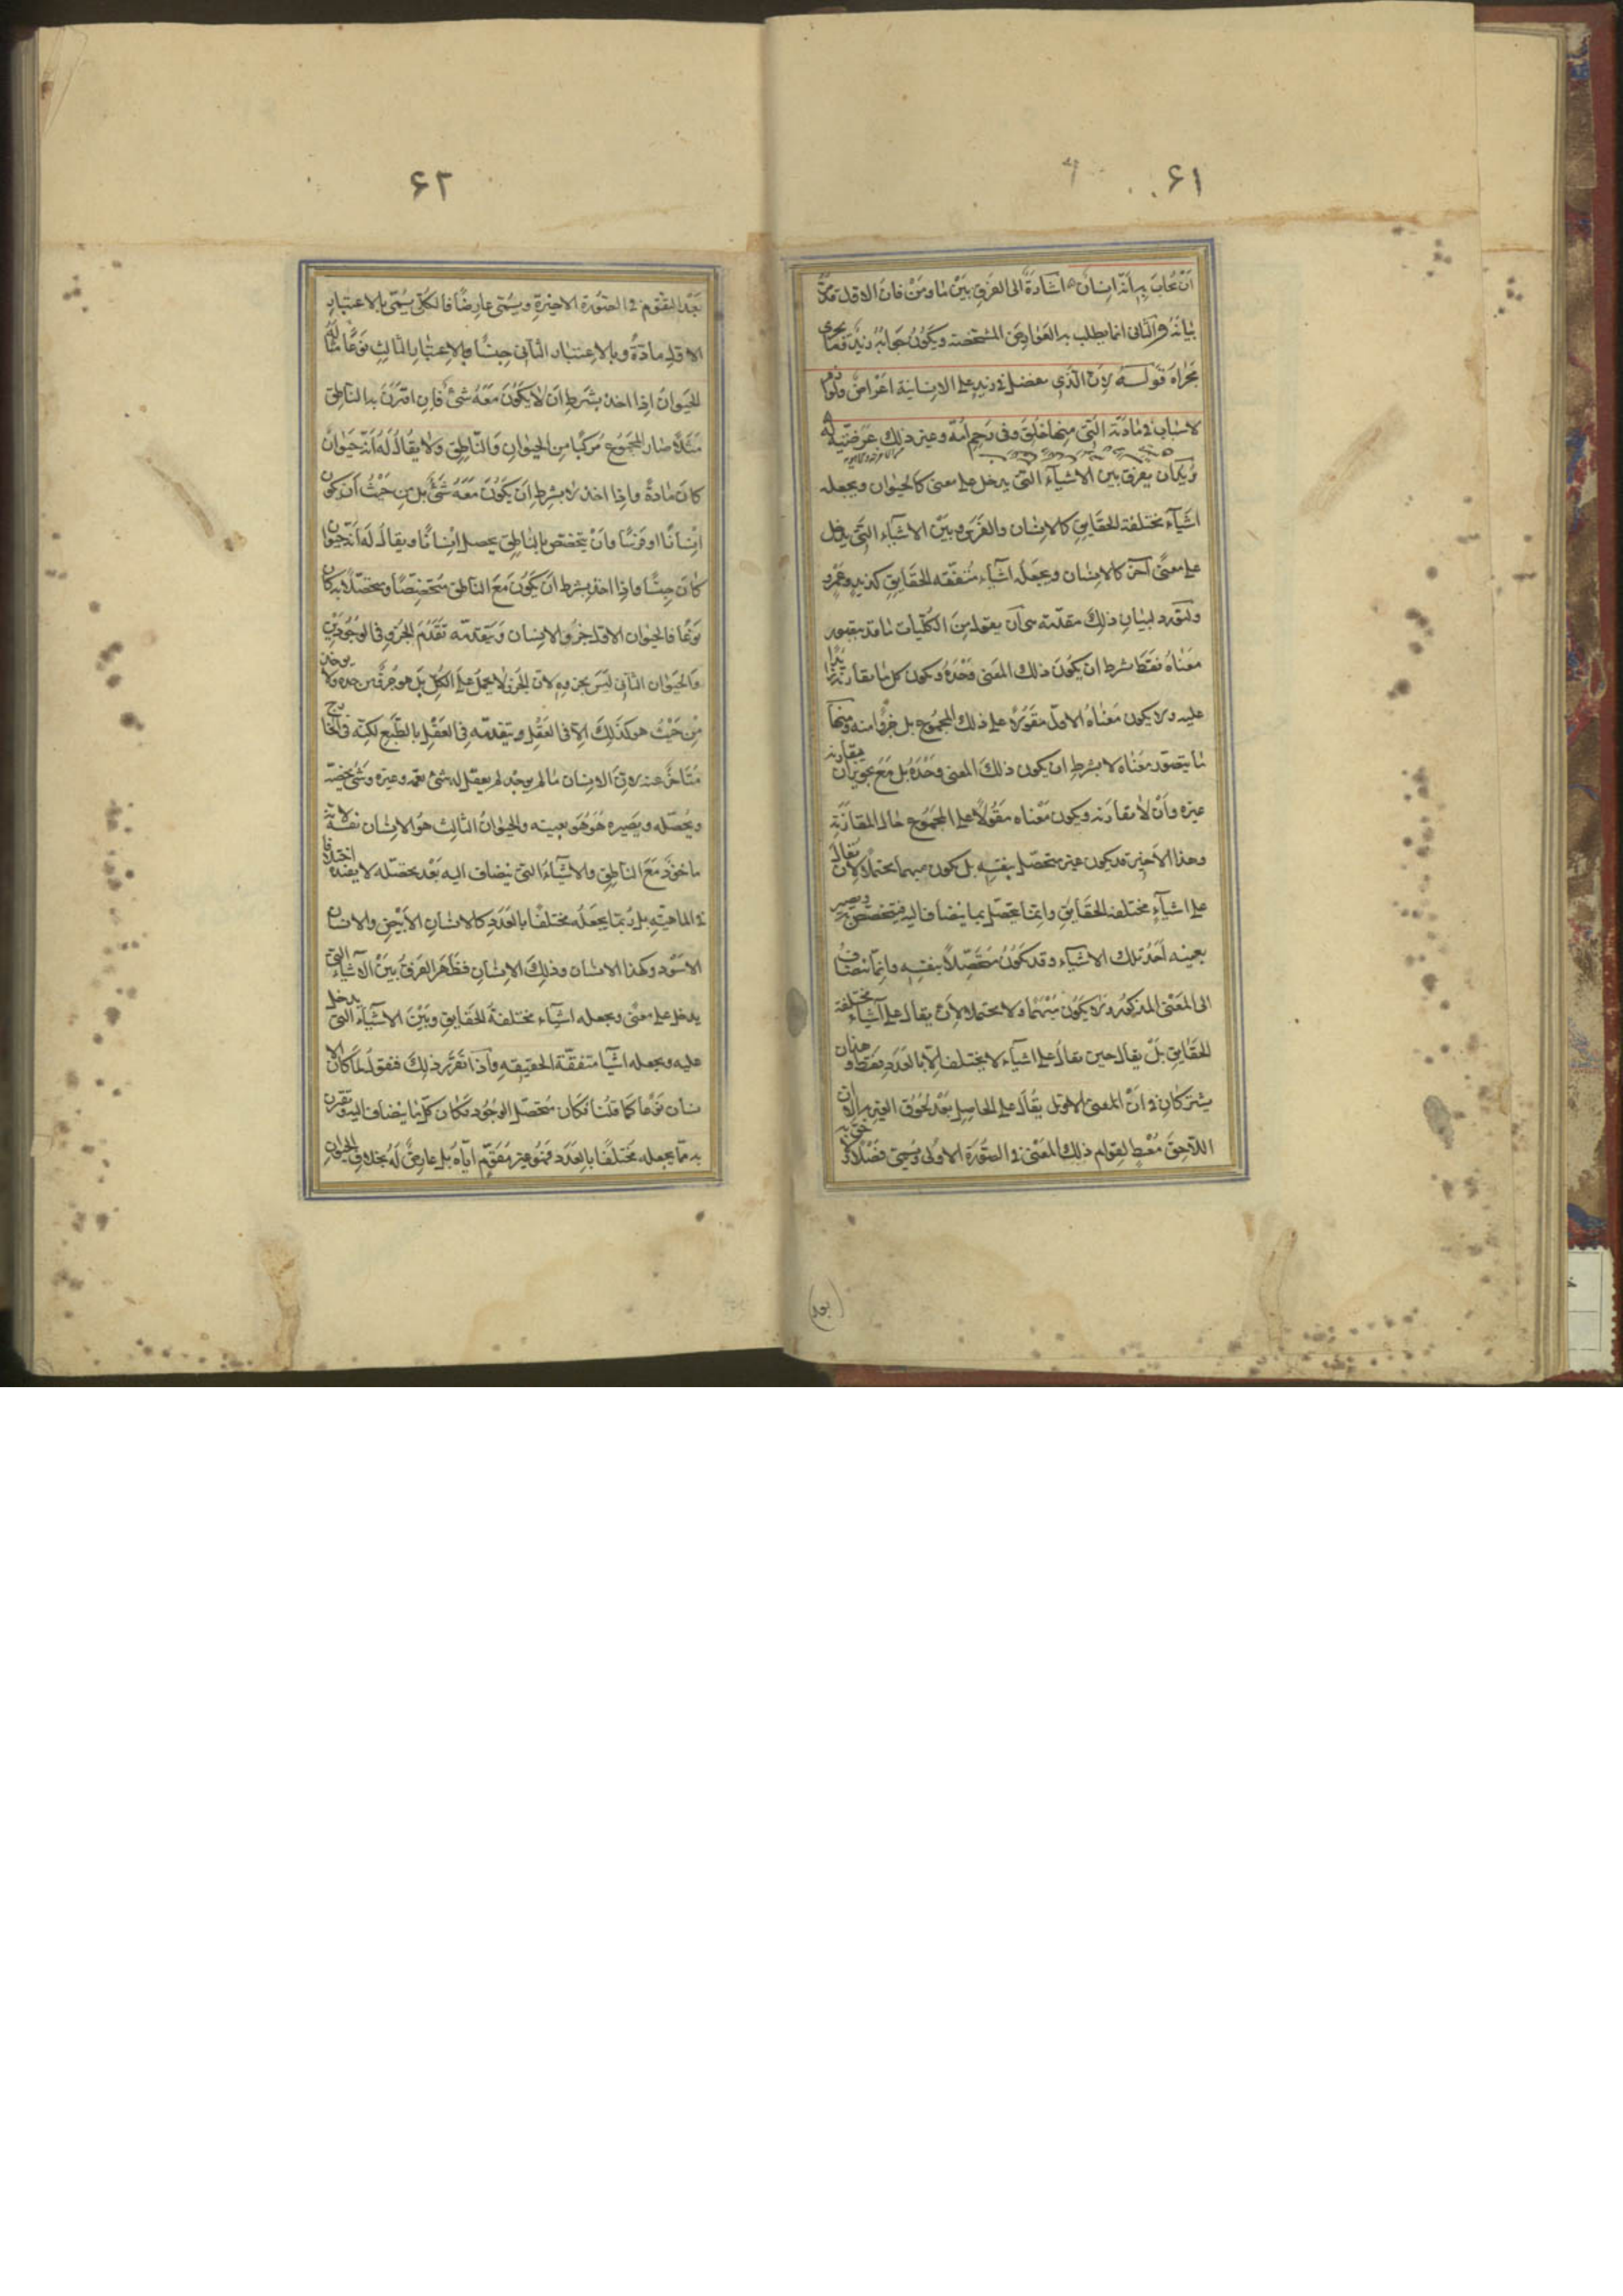 ۶۱
ان يجاب بهانه انسان اشارة الى الفرق بين ما ومن فان الاول قد مر
بيانه والثانى انما يطلب به العوارض المشخصة ويكون جوابه زيد وما يجرى
مجراه قوله لان الذى يفضل فى زيد على الانسانية اعراض ولوازم
لاسباب فى مادته التى منها خلق وفى رحم امه وغير ذلك عرضت له
يريد ان يفرق بين الاشياء التى يدخل على معنى كالحيوان ويجعله
اشياء مختلفة الحقايق كالانسان والفرس وبين الاشياء التى يدخل
على معنى آخر كالانسان ويجعله اشياء متفقه الحقايق كزيد وعمرو
ولنورد لبيان ذلك مقدمة هى ان يقول من الكليات ما قد يتصور
معناه فقط بشرط ان يكون ذلك المعنى وحده ويكون كل ما يقارنه زايدا
عليه ولا يكون معناه الاول مقولا على ذلك المجموع بل جزءا منه ومنها
ما يتصور معناه لا بشرط ان يكون ذلك المعنى وحده بل مع تجويز ان يقارنه
غيره وان لا يقارنه ويكون معناه مقولا على المجموع حال المقارنة
وهذا الاخير قد يكون غير متحصل بنفسه بل يكون مبهما محتملا لان يقال
على اشياء مختلفة الحقايق وانما يتحصل بما ينضاف اليه فيتخصص به ويصير
بعينه احد تلك الاشياء وقد يكون متحصلا بنفسه وانما ينضاف
الى المعنى المذكور ولا يكون مبهما ولا محتملا لان يقال على اشياء مختلفة
الحقايق بل يقال حين يقال على اشياء لا يختلف الا بالعدد فقط وهذان
يشتركان فى ان المعنى الاول يقال على الحاصل بعد لحوق الغير به الا ان
اللاحق معط لقوام ذلك المعنى فى الصورة الاولى ويسمى فصلا ولاحق به
۶۲
بعد التقوم فى الصورة الاخيرة ويسمى عارضا فالكلى يسمى بالاعتبار
الاول مادة وبالاعتبار الثانى جنسا وبالاعتبار الثالث نوعا مثاله
الحيوان اذا اخذ بشرط ان لا يكون معه شئ فان اقترن به الناطق
مثلا صار المجموع مركبا من الحيوان والناطق ولا يقال له انه حيوان
كان مادة واذا اخذ لا بشرط ان يكون معه شئ بل من حيث ان يكون
انسانا او فرسا وان يتخصص بالناطق يحصل انسانا ويقال له انه حيوان
كان جنسا واذا اخذ بشرط ان يكون مع الناطق متخصصا ومتحصلا به كان
نوعا فالحيوان الاول جزء الانسان ويتقدمه تقدم الجزء فى الوجودين
والحيوان الثانى ليس بجزء لان الجزء لا يحمل على الكل بل هو جزء من حده ولا يوجد
من حيث هو كذلك الا فى العقل ويتقدمه فى العقل بالطبع لكنه فى الخارج
متاخر عنه لان الانسان ما لم يوجد لم يعقل له شئ يعمه وغيره وشئ يخصه
ويحصله ويصيره هو هو بعينه والحيوان الثالث هو الانسان نفسه لانه
ماخوذ مع الناطق والاشياء التى ينضاف اليه بعد تحصله لا يفيده اختلافا
فى الماهية بل ربما يجعله مختلفا بالعدد كالانسان الابيض والانسان
الاسود وكهذا الانسان وذلك الانسان فظهر الفرق بين الاشياء التى
يدخل على معنى ويجعله اشياء مختلفة الحقايق وبين الاشياء التى يدخل
عليه ويجعله اشيا متفقة الحقيقه واذا تقرر ذلك فنقول لما كان الا
نسان نوعا كما قلنا فكان متحصل الوجود فكان كل ما ينضاف اليه ويقترن
به مما يجعله مختلفا بالعدد فهو غير مقوم اياه بل عارض له بخلاف الحيوان